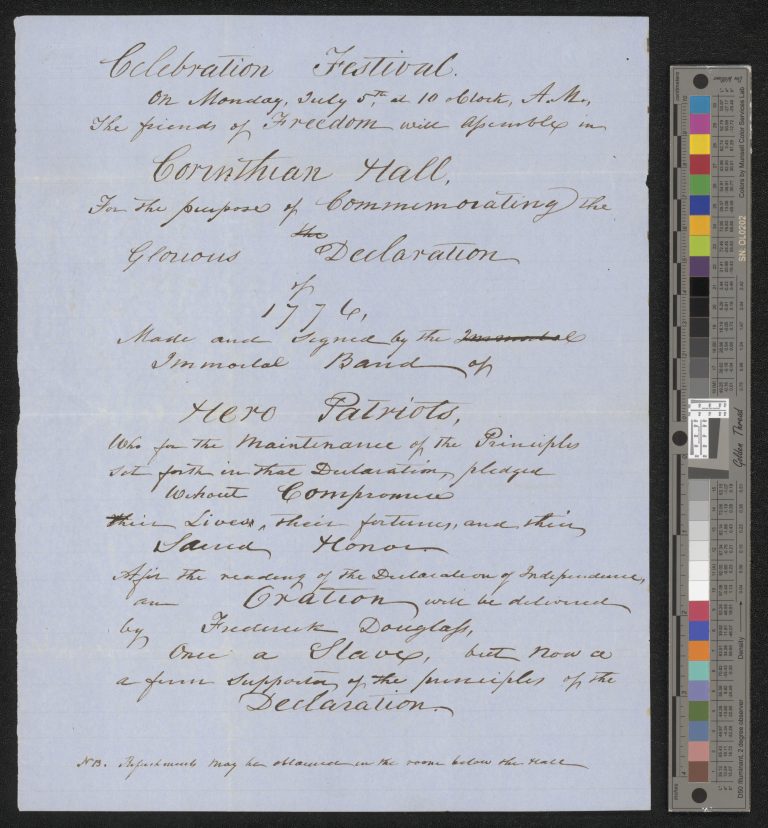 Celebration Festival.
On Monday, July 5th, at 10 oClock, A.M.,
The friends of Freedom will Assemble in
Corinthian Hall,
For the purpose of Commemorating the
the
Glorious Declaration
of
1776,
Made and signed by the Immortal
Immortal Band of
Hero Patriots,
Who for the Maintenance of the Principles
set forth in that Declaration, pledged
Without Compromise
their Lives, their fortunes, and their
Sacred Honor.
After the reading of the Declaration of Independence,
an Oration will be delivered
by Frederick Douglass,
Once a Slave, but now a
a firm supporter of the principles of the
Declaration.
NB. Refreshments may be obtained in the room below the Hall
Colors by Munsell Color Services Lab
SN: OL0202
Golden Thread
Density
D50 Illuminant, 2 degree observer
centimeters
inches